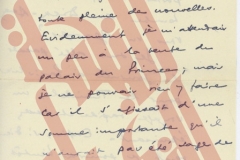 toute pleine de nouvelles.
Évidemment je m'attendais
un peu à la vente du
palais du Prince; mais
je ne pouvais rien y faire
car il s'agissait d'une
somme importante qu'il
n'aurait pas été sage de